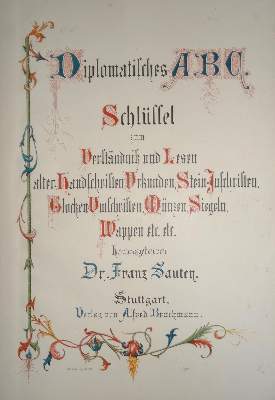 Diplomatisches A.B.C.
Schlüssel
zum
Verständniß und Lesen
alter Handschriften, Urkunden, Stein-Inschriften,
Glocken-Umschriften, Münzen, Siegeln,
Wappen etc. etc.
herausgegeben
Dr. Franz Sauter.
Stuttgart.
Verlag von Alfred